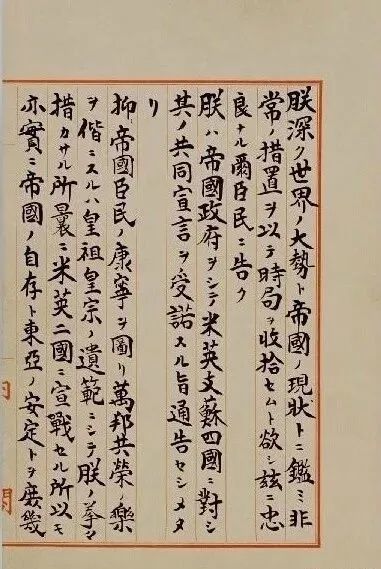 朕深ク世界ノ大勢ト帝國ノ現狀トニ鑑ミ非
常ノ措置ヲ以テ時局ヲ收拾セムト欲シ茲ニ忠
良ナル爾臣民ニ告ク
朕ハ帝國政府ヲシテ米英支蘇四國ニ對シ
其ノ共同宣言ヲ受諾スル旨通告セシメタ
リ
抑帝國臣民ノ康寧ヲ圖リ萬邦共榮ノ樂
ヲ偕ニスルハ皇祖皇宗ノ遺範ニシテ朕ノ拳々
措カサル所曩ニ米英二國ニ宣戰セル所以モ
亦實ニ帝國ノ自存ト東亞ノ安定トヲ庶幾
內閣